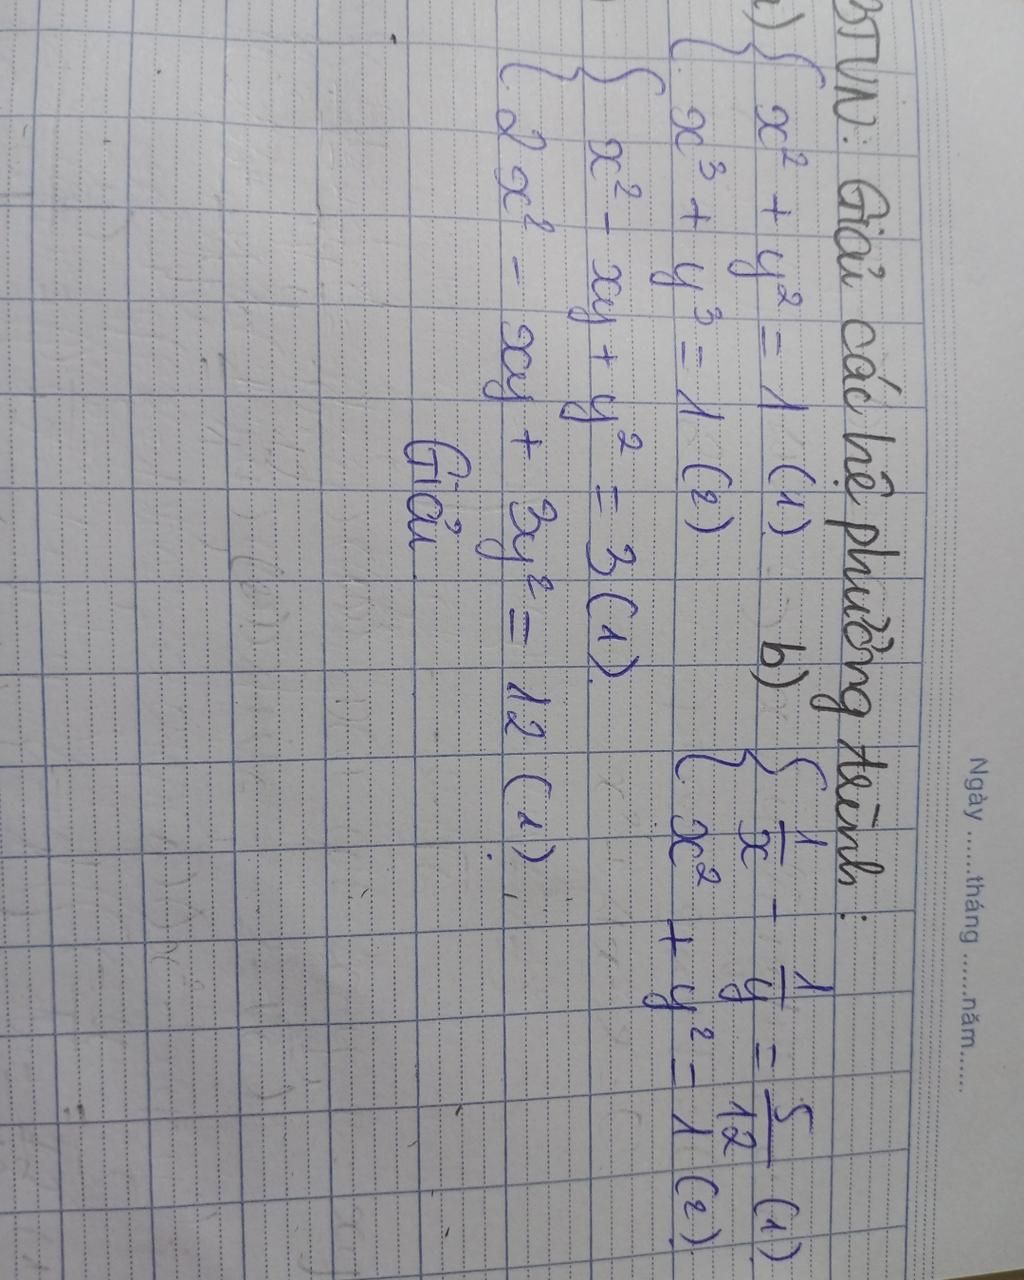 Ngày ......tháng ......năm......
BTVN: Giải các hệ phương trình:
a) { x² + y² = 1 (1) b) { 1/x - 1/y = 5/12 (1)
{ x³ + y³ = 1 (2) { x² + y² = 1 (2)
{ x² - xy + y² = 3 (1)
{ 2x² - xy + 3y² = 12 (1)
Giải